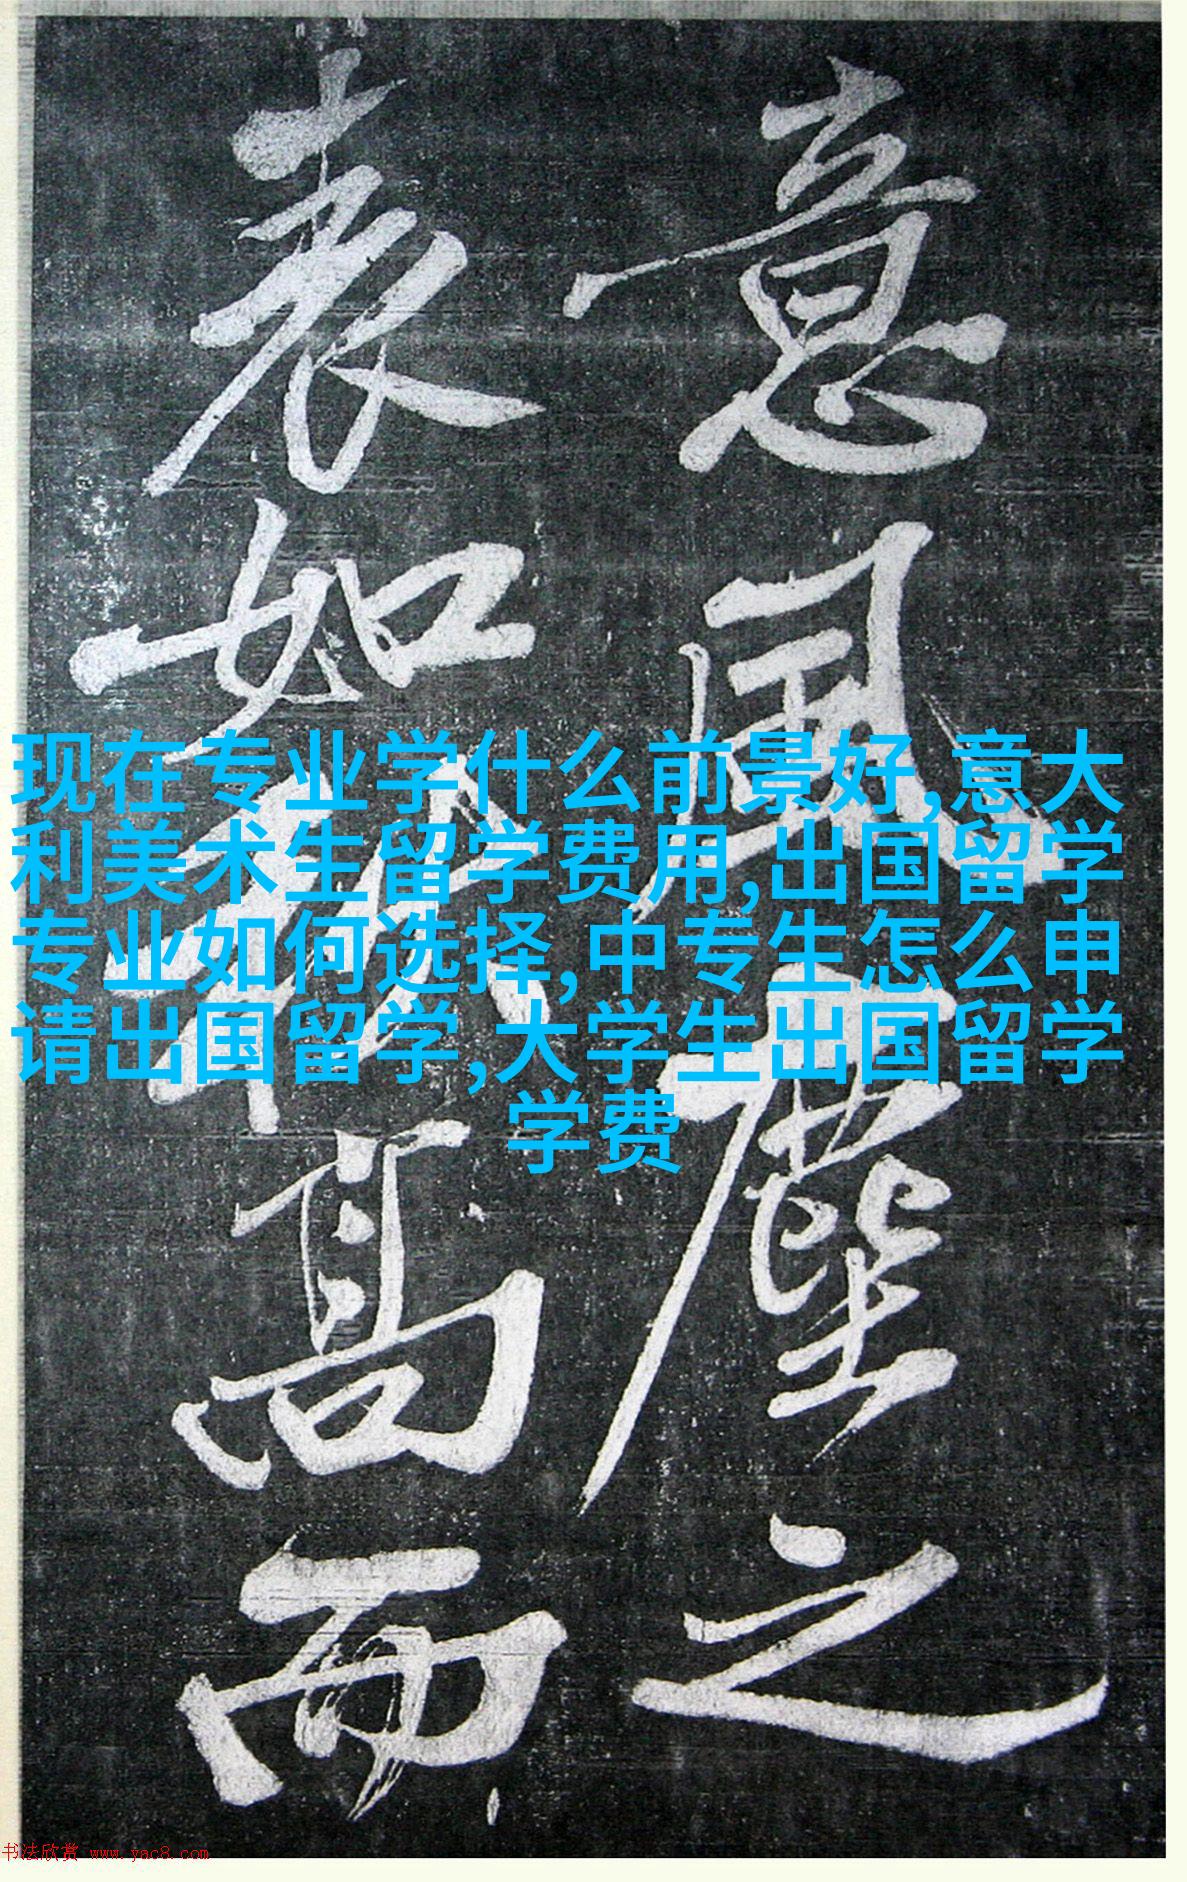 意風塵之
表如高而
现在专业学什么前景好,意大
利美术生留学费用,出国留学
专业如何选择,中专生怎么申
请出国留学,大学生出国留学
学费
书法欣赏 www.yac8.com